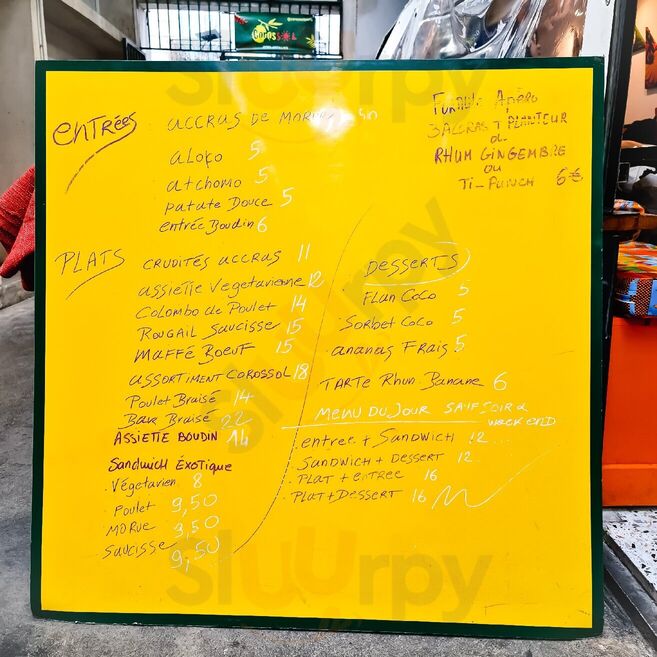 Coros
entrées
accras de
aloko 5
atchomo 5
patate Douce 5
entrée Boudin 6
Formule Apéro
3 ACCRAS + PLANTEUR
ou
RHUM GINGEMBRE
ou
Ti-PUNCH 6€
PLATS
CRUDITÉS ACCRAS 11
assiette vegetarienne 12
Colombo de Poulet 14
ROUGAIL SauCisse 15
maffé BoeuF 15
assortiment corossol 18
Poulet Braisé 14
Bar Braisé 22
ASSIETTE BOUDIN 14
Sandwich Éxotique
. Végetarien 8
. Poulet 9,50
. MORue 9,50
. saucisse 9,50
Desserts
. Flan CoCo 5
. Sorbet Coco 5
. ananas Frais 5
. TARTE Rhum Banane 6
menu DU JOUR SAUF SOIR &
WEEK END
. entrée + Sandwich 12...
. Sandwich + Dessert 12..
. PLAT + entrée 16
. Plat + Dessert 16
Sluurpy
Sluurpy
Sluurpy